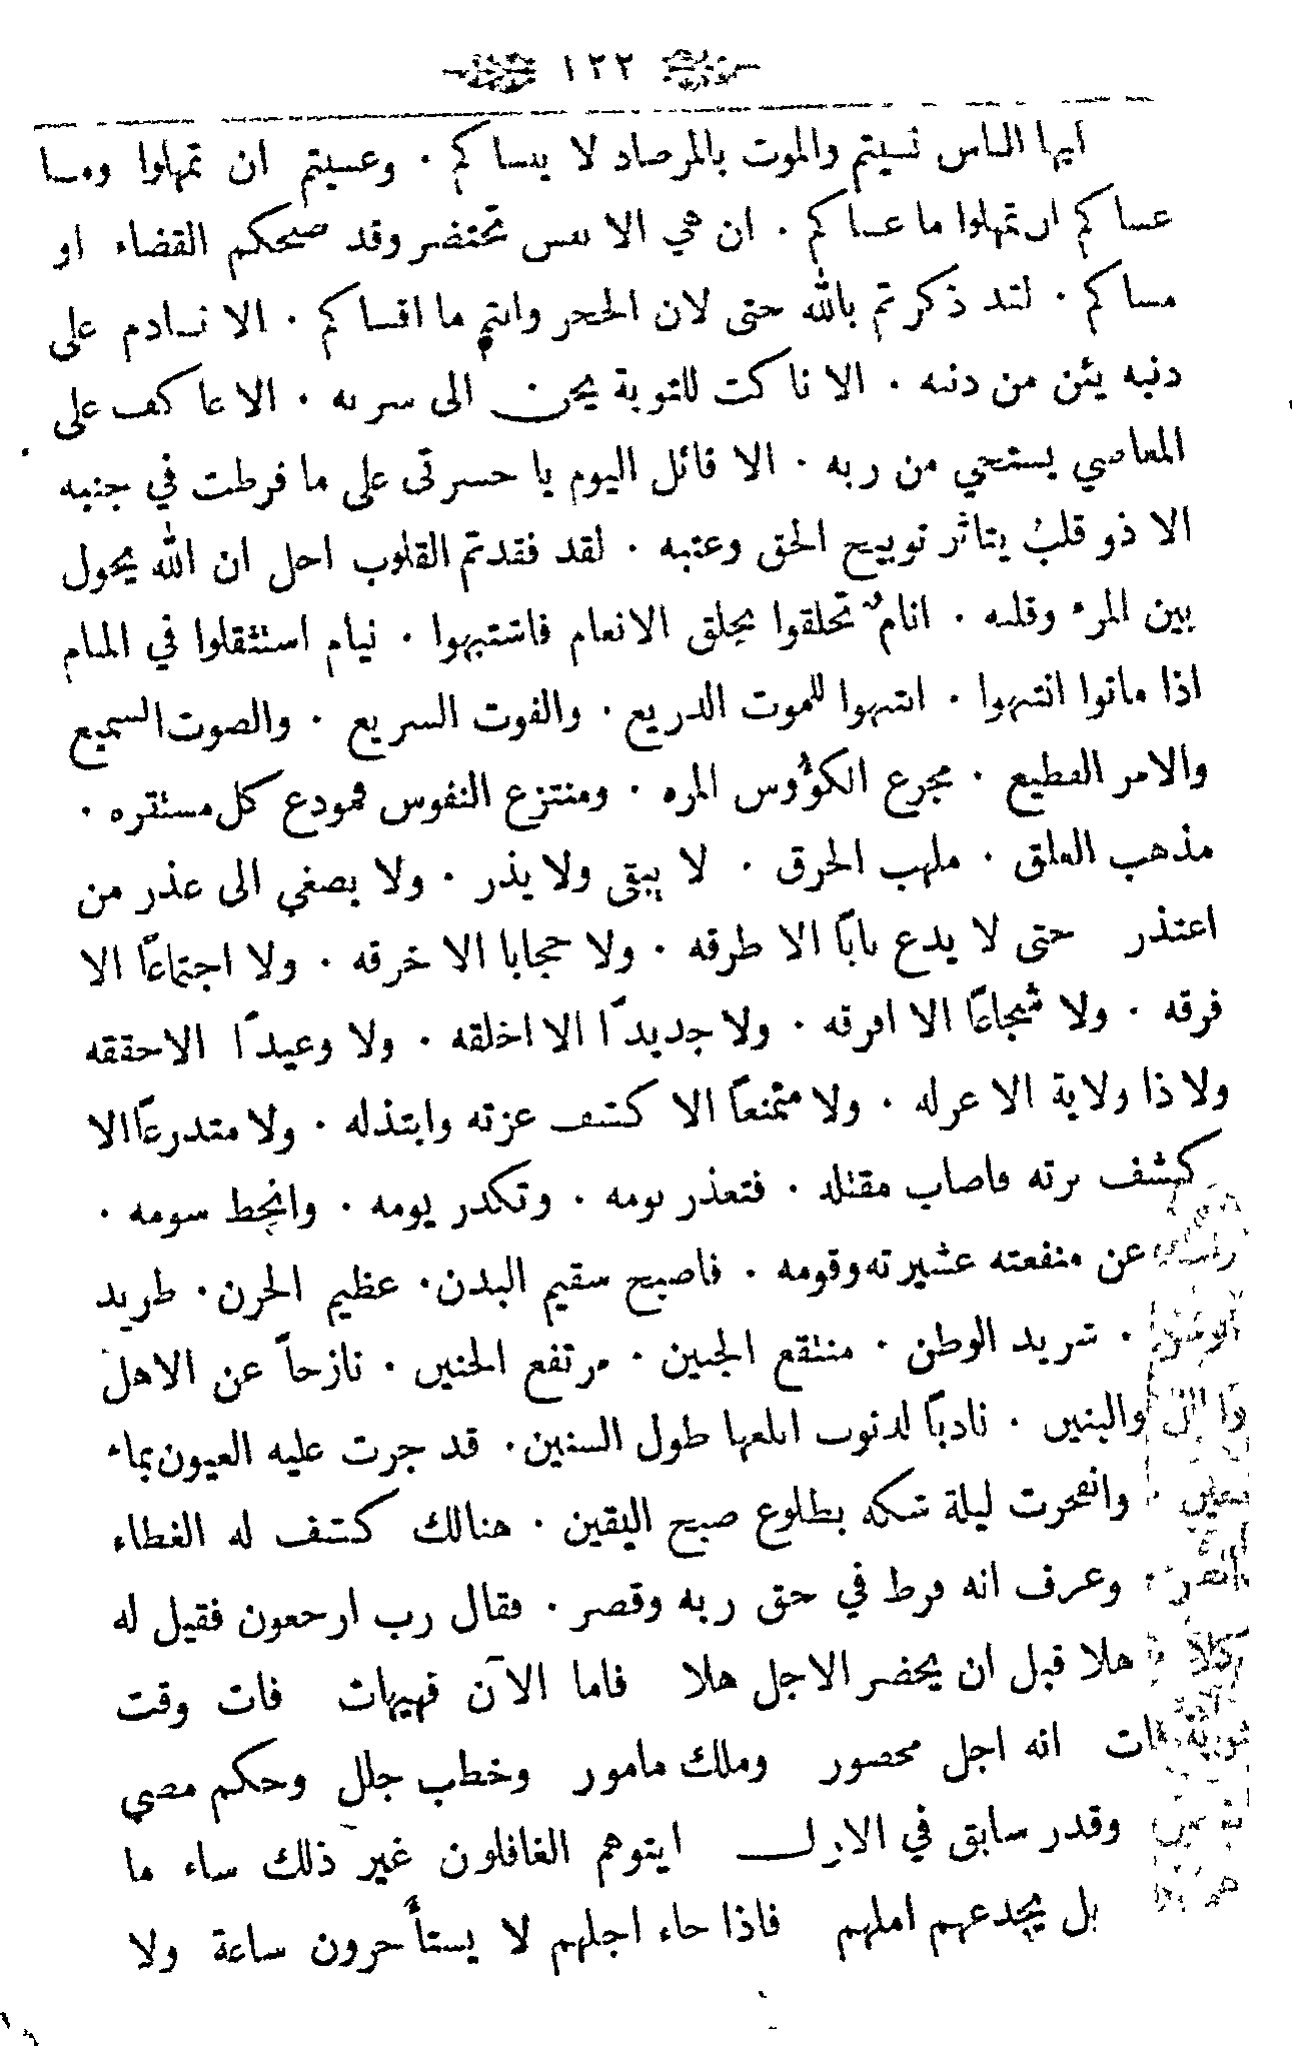 ١٢٢
ايها الناس نسيتم والموت بالمرصاد لا ينساكم . وعسيتم ان تمهلوا وما
عساكم ان تمهلوا ما عساكم . ان هي الا نفس تحتضر وقد صبحكم القضاء او
مساكم . لقد ذكرتم بالله حتى لان الحجر وانتم ما اقساكم . الا نادم على
ذنبه يئن من ذنبه . الا ناكث للتوبة يحن الى سربه . الا عاكف على
المعاصي يستحي من ربه . الا قائل اليوم يا حسرتى على ما فرطت في جنبه
الا ذو قلب يتاثر توبيح الحق وعتبه . لقد فقدتم القلوب اجل ان الله يحول
بين المرء وقلبه . انام تخلقوا بخلق الانعام فاشتبهوا . نيام استثقلوا في المنام
اذا ماتوا انتبهوا . انتبهوا للموت الذريع . والفوت السريع . والصوت السميع
والامر الفظيع . مجرع الكؤوس المره . ومنتزع النفوس فمودع كل مستقره .
مذهب العلق . ملهب الحرق . لا يبقى ولا يذر . ولا يصغي الى عذر من
اعتذر حتى لا يدع بابًا الا طرقه . ولا حجابا الا خرقه . ولا اجتماعًا الا
فرقه . ولا شجاعًا الا افرقه . ولا جديدًا الا اخلقه . ولا وعيدًا الا حققه
ولا ذا ولاية الا عزله . ولا متمنعًا الا كشف عزته وابتذله . ولا متدرعًا الا
كشف بزته فاصاب مقتله . فتعذر نومه . وتكدر يومه . وانحط سومه .
عن منفعته عشيرته وقومه . فاصبح سقيم البدن . عظيم الحزن . طريد
. شريد الوطن . منتقع الجبين . مرتفع الحنين . نازحاً عن الاهل
والبنين . نادبًا لذنوب طول السنين . قد جرت عليه العيون بماء
وانفجرت ليلة شكه بطلوع صبح اليقين . هنالك كشف له الغطاء
وعرف انه فرط في حق ربه وقصر . فقال رب ارجعون فقيل له
كلا هلا قبل ان يحضر الاجل هلا فاما الآن فهيهات فات وقت
انه اجل محصور وملك مامور وخطب جلل وحكم مضى
وقدر سابق في الازل ايتوهم الغافلون غير ذلك ساء ما
بل يخدعهم املهم فاذا جاء اجلهم لا يستأخرون ساعة ولا